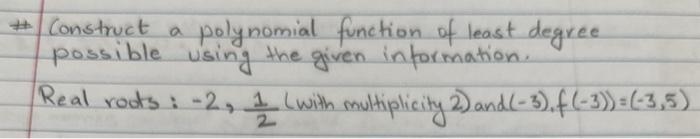 # Construct a polynomial function of least degree
possible using the given information.
Real roots : -2, 1/2 (with multiplicity 2) and (-3), f(-3)) = (-3,5)